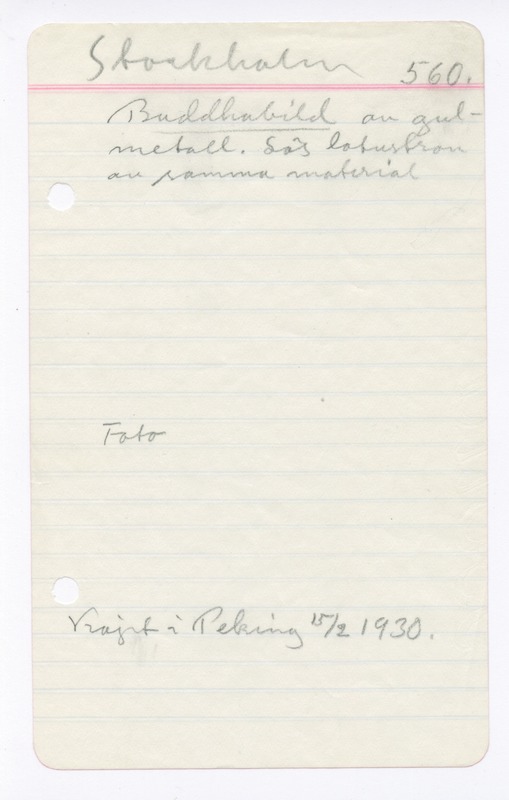 Stockholm 560.
Buddhabild av gul-
metall. Lös lotustron
av samma material
Foto
Köpt i Peking 15/2 1930.